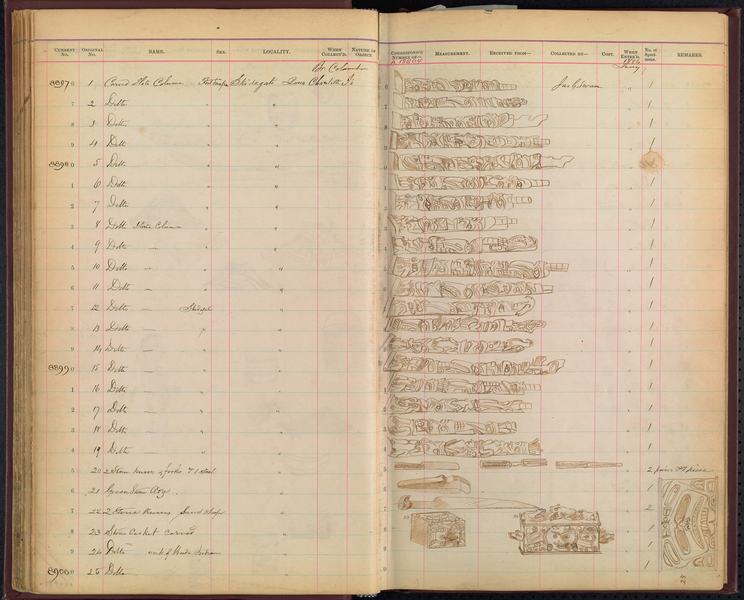 CURRENT No. ORIGINAL No. NAME. SEX. LOCALITY. WHEN COLLECT'D. NATURE OF OBJECT. CORRESPOND'G NUMBER OF— MEASUREMENT. RECEIVED FROM— COLLECTED BY— COST. WHEN ENTER'D. No. of Specimens. REMARKS.
Br. Columbia 1884
88970 1 Carved Slate Column Skidegate Queen Charlotte Is Jas G Swan " 1
7 2 Ditto " " 1
8 3 Ditto " " 1
9 4 Ditto " " 1
88980 5 Ditto " "
1 6 Ditto " " 1
2 7 Ditto " " 1
3 8 Ditto Slate Column " " 1
4 9 Ditto — " " 1
5 10 Ditto — " 1
6 11 Ditto — " " 1
7 12 Ditto — " 1
8 13 Ditto — " " 1
9 14 Ditto — " " 1
88990 15 Ditto — " " 1
1 16 Ditto — " " 1
2 17 Ditto — " " 1
3 18 Ditto " " 1
4 19 Ditto — " " 1
5 20 2 Stone knives & forks & 1 steel " 2 pair & 1 piece
6 21 Green Stone Adze " 1
7 22 2 Stone knives, Sword Shape " 2
8 23 Stone Casket carved " 1
9 24 Ditto " 1
89000 25 Ditto " 1
25